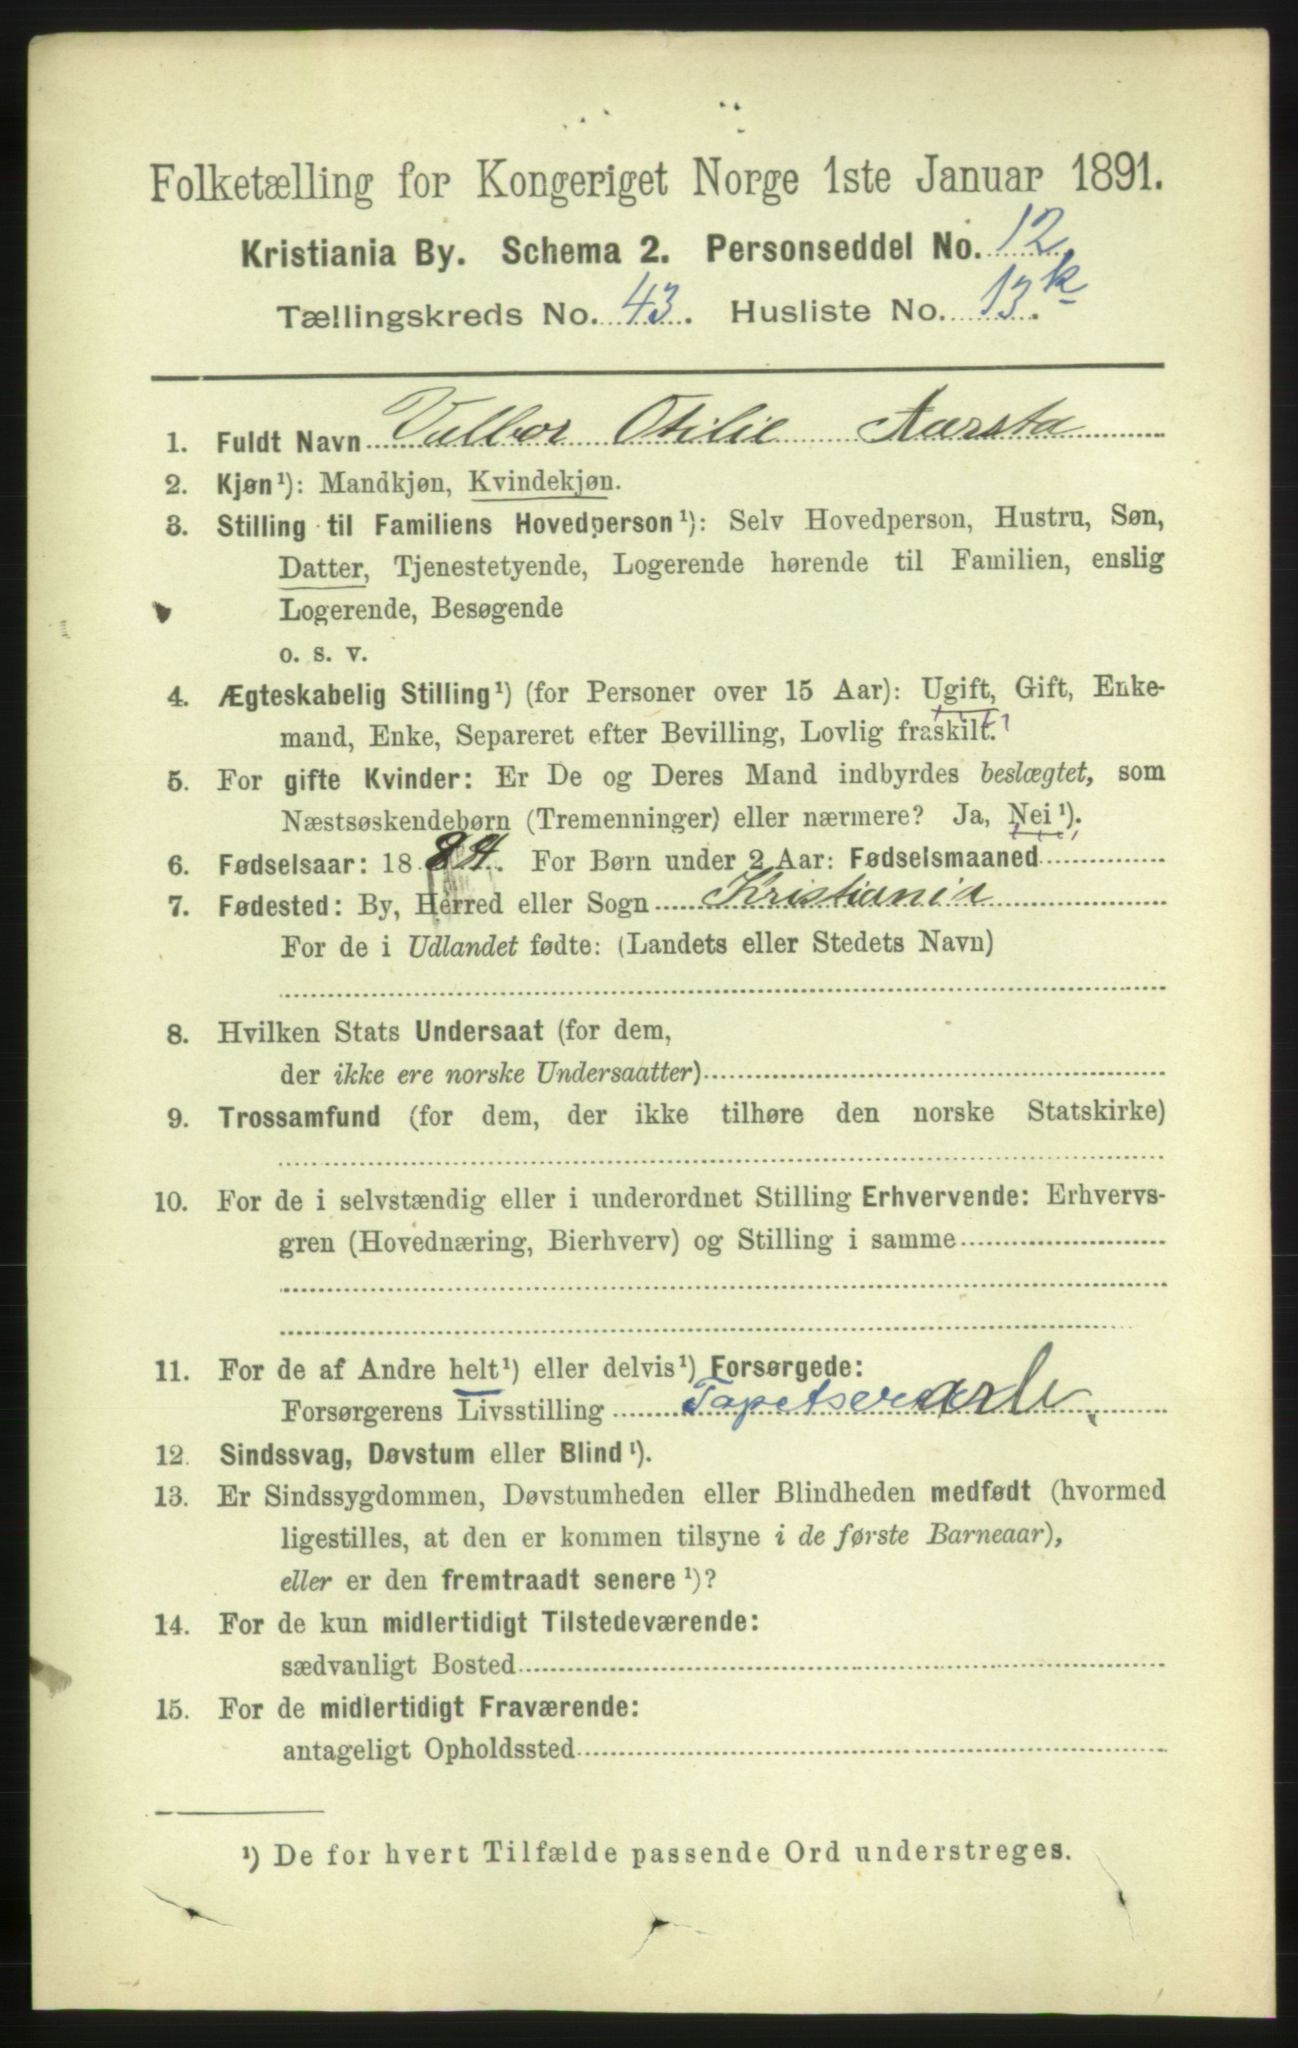 Folketælling for Kongeriget Norge 1ste Januar 1891.
Kristiania By. Schema 2. Personseddel No. 12.
Tællingskreds No. 43. Husliste No. 13 k.
1. Fuldt Navn Valbor Otilie Aarsta
2. Kjøn¹): Mandkjøn, Kvindekjøn.
3. Stilling til Familiens Hovedperson¹): Selv Hovedperson, Hustru, Søn,
Datter, Tjenestetyende, Logerende hørende til Familien, enslig
Logerende, Besøgende
o. s. v.
4. Ægteskabelig Stilling¹) (for Personer over 15 Aar): Ugift, Gift, Enke-
mand, Enke, Separeret efter Bevilling, Lovlig fraskilt.
5. For gifte Kvinder: Er De og Deres Mand indbyrdes beslægtet, som
Næstsøskendebørn (Tremenninger) eller nærmere? Ja, Nei¹).
6. Fødselsaar: 1884. For Børn under 2 Aar: Fødselsmaaned
7. Fødested: By, Herred eller Sogn Kristiania
For de i Udlandet fødte: (Landets eller Stedets Navn)
8. Hvilken Stats Undersaat (for dem,
der ikke ere norske Undersaatter)
9. Trossamfund (for dem, der ikke tilhøre den norske Statskirke)
10. For de i selvstændig eller i underordnet Stilling Erhvervende: Erhvervs-
gren (Hovednæring, Bierhverv) og Stilling i samme
11. For de af Andre helt¹) eller delvis¹) Forsørgede:
Forsørgerens Livsstilling Tapetserarb.
12. Sindssvag, Døvstum eller Blind¹).
13. Er Sindssygdommen, Døvstumheden eller Blindheden medfødt (hvormed
ligestilles, at den er kommen tilsyne i de første Barneaar),
eller er den fremtraadt senere¹)?
14. For de kun midlertidigt Tilstedeværende:
sædvanligt Bosted
15. For de midlertidigt Fraværende:
antageligt Opholdssted
¹) De for hvert Tilfælde passende Ord understreges.